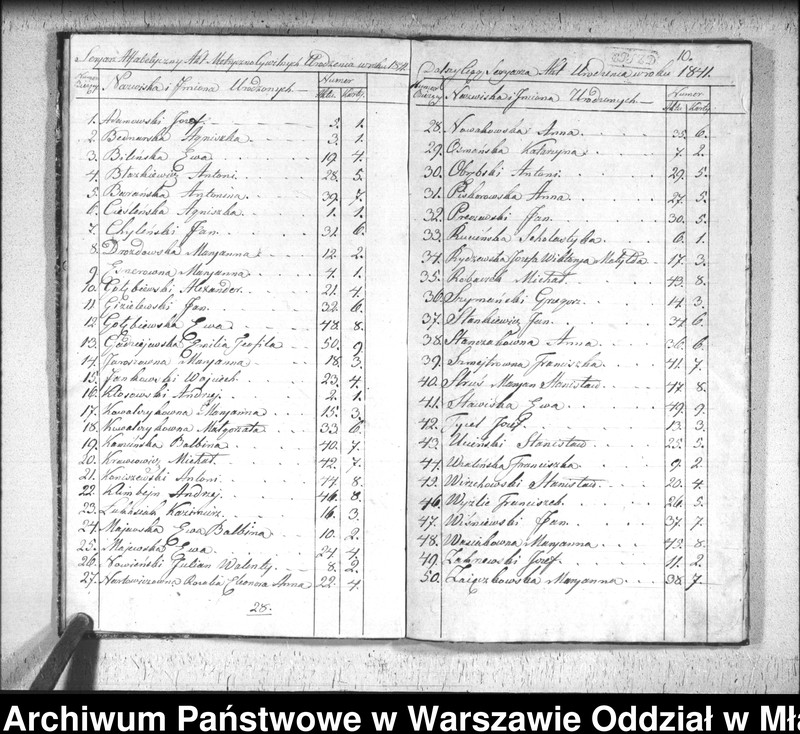 Numer
Nazwiska i Imiona Urodzonych
Aktu Karty
1. Adamowski Józef 1.
2. Bednarska Agniszka 3. 1.
3. Bilińska Ewa 19. 4.
4. Błaszkiewicz Antoni 28. 5.
5. Burańska Antonina 39. 7.
6. Cieślińska Agniszka 1. 1.
7. Chyliński Jan 31. 6.
8. Drozdowska Maryanna 12. 2.
9. Maryanna 4. 1.
10. Gołębiewski Alexander 21. 4.
11. Jan 32. 6.
12. Gołębiewska Ewa 48. 8.
13. Emilia Teofila 50. 9.
14. Jarosiowna Maryanna 18. 3.
15. Jankowski Woyciech 23. 4.
16. Kłosowski Andrzej 2. 1.
17. Kowalczykowna Maryanna 15. 3.
18. Kowalczykowna Małgorzata 33. 6.
19. Kamińska Balbina 40. 7.
20. Michał 42. 7.
21. Koniszewski Antoni 44. 8.
22. Andrzej 46. 8.
23. Kazimirz 16. 3.
24. Majewska Ewa Balbina 10. 2.
25. Majewska Ewa 24. 4.
26. Julian Walenty 8. 2.
27. Rozalia Eleonora Anna 22. 4.
28.
10.
Dalszy Ciąg Akt Urodzenia w roku 1841.
Numer
Nazwiska i Imiona Urodzonych
Aktu Karty
28. Nowakowska Anna 35. 6.
29. Osmańska Katarzyna 7. 2.
30. Antoni 29. 5.
31. Piskorowska Anna 27. 5.
32. Jan 30. 5.
33. Rucińska Scholastyka 6. 1.
34. Rydzewska Józefa Wiktorya Matylda 17. 3.
35. Michał 43. 8.
36. Szymański Grzegorz 14. 3.
37. Stankiewicz Jan 34. 6.
38. Stanczakowna Anna 36. 6.
39. Franciszka 41. 7.
40. Struś Maryan Stanisław 47. 8.
41. Sławińska Ewa 49. 9.
42. Józef 13. 3.
43. Uciński Stanisław 25. 5.
44. Franciszka 9. 2.
45. Wirzchowski Stanisław 20. 4.
46. Franciszek 26. 5.
47. Wiśniewski Jan 37. 7.
48. Maryanna 45. 8.
49. Józef 11. 2.
50. Zaięczkowska Maryanna 38. 7.
Archiwum Państwowe w Warszawie Oddział w